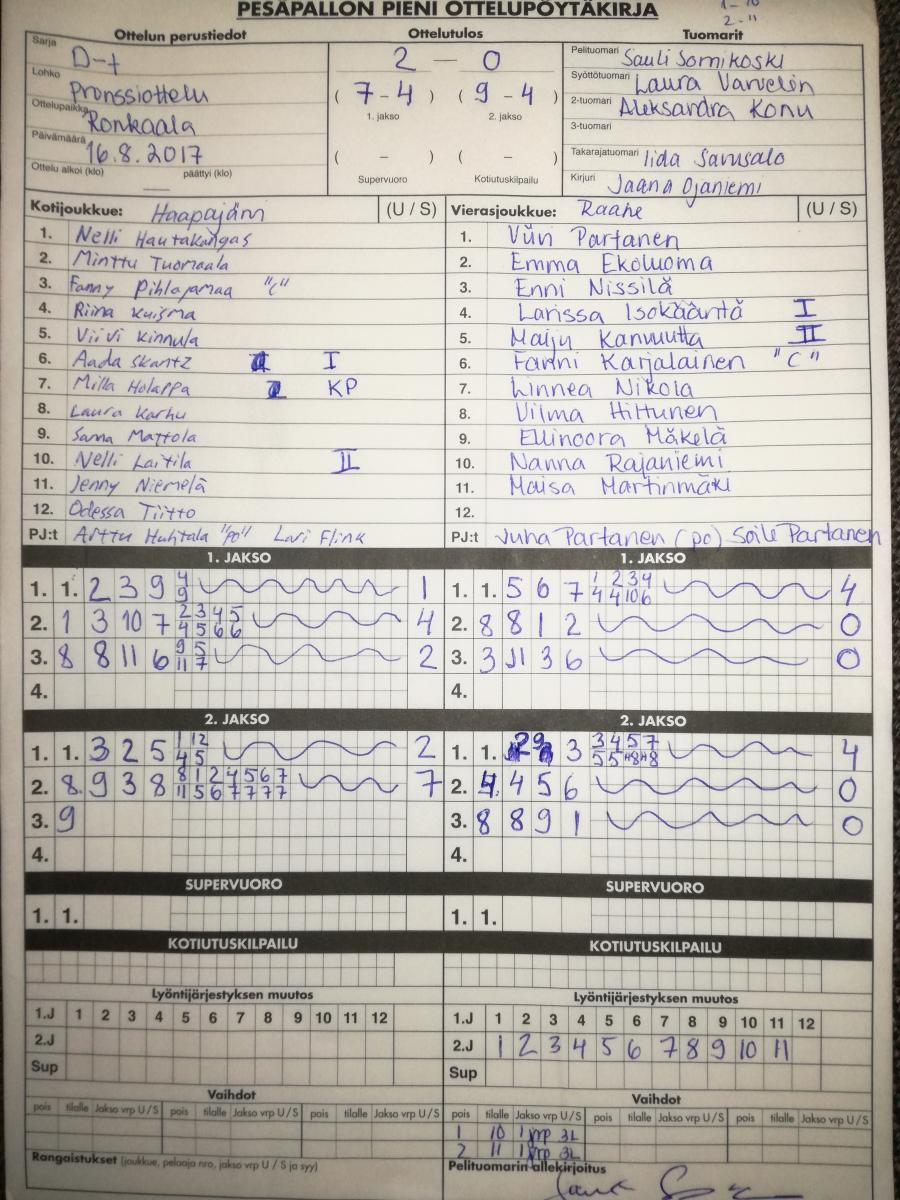 PESÄPALLON PIENI OTTELUPÖYTÄKIRJA
1-10
2-11
Ottelun perustiedot
Sarja D-t
Lohko Pronssiottelu
Ottelupaikka Ronkaala
Päivämäärä 16.8.2017
Ottelu alkoi (klo) — päättyi (klo)
Ottelutulos
2 — 0
( 7 - 4 ) ( 9 - 4 )
1. jakso 2. jakso
( – ) ( – )
Supervuoro Kotiutuskilpailu
Tuomarit
Pelituomari Sauli Sornikoski
Syöttötuomari Laura
2-tuomari Aleksandra Konu
3-tuomari
Takarajatuomari Iida
Kirjuri Jaana Ojaniemi
Kotijoukkue: Haapajärvi (U / S)
1. Nelli Hautakangas
2. Minttu Tuomaala
3. Fanny Pihlajamaa "C"
4. Riina Kuisma
5. Viivi Kinnula
6. Aada Skantz I
7. Milla Holappa KP
8. Laura Karhu
9. Sanna Mattola
10. Nelli Laitila II
11. Jenny Niemelä
12. Odessa Tiitto
PJ:t Arttu Huhtala "po" Lari Flink
Vierasjoukkue: Raahe (U / S)
1. Viivi Partanen
2. Emma Ekoluoma
3. Enni Nissilä
4. Larissa Isokääntä I
5. Maiju Kanuutta II
6. Fanni Karjalainen "C"
7. Linnea Nikola
8. Vilma Hiltunen
9. Ellinoora Mäkelä
10. Nanna Rajaniemi
11. Maisa Martinmäki
12.
PJ:t Juha Partanen (po) Soile Partanen
1. JAKSO
1. 1. 2 3 9 4 1
9
2. 1 3 10 7 2 3 4 5 4
4 5 6 6
3. 8 8 11 6 9 5 2
11 7
4.
1. JAKSO
1. 1. 5 6 7 1 2 3 4 4
4 4 10 6
2. 8 8 1 2 0
3. 3 11 3 6 0
4.
2. JAKSO
1. 1. 3 2 5 1 12 2
4 5
2. 8. 9 3 8 8 1 2 4 5 6 7 7
11 5 6 7 7 7 7
3. 9
4.
2. JAKSO
1. 1. 2 9 3 3 4 5 7 4
5 5 8 8
2. 4. 4 5 6 0
3. 8 8 9 1 0
4.
SUPERVUORO
1. 1.
SUPERVUORO
1. 1.
KOTIUTUSKILPAILU
KOTIUTUSKILPAILU
Lyöntijärjestyksen muutos
1.J 1 2 3 4 5 6 7 8 9 10 11 12
2.J
Sup
Lyöntijärjestyksen muutos
1.J 1 2 3 4 5 6 7 8 9 10 11 12
2.J 1 2 3 4 5 6 7 8 9 10 11
Sup
Vaihdot
pois tilalle Jakso vrp U/S pois tilalle Jakso vrp U/S pois tilalle Jakso vrp U/S
Vaihdot
pois tilalle Jakso vrp U/S pois tilalle Jakso vrp U/S pois tilalle Jakso vrp U/S
1 10 1 vrp 3L
2 11 1 vrp 3L
Rangaistukset (joukkue, pelaaja nro, jakso vrp U / S ja syy)
Pelituomarin allekirjoitus